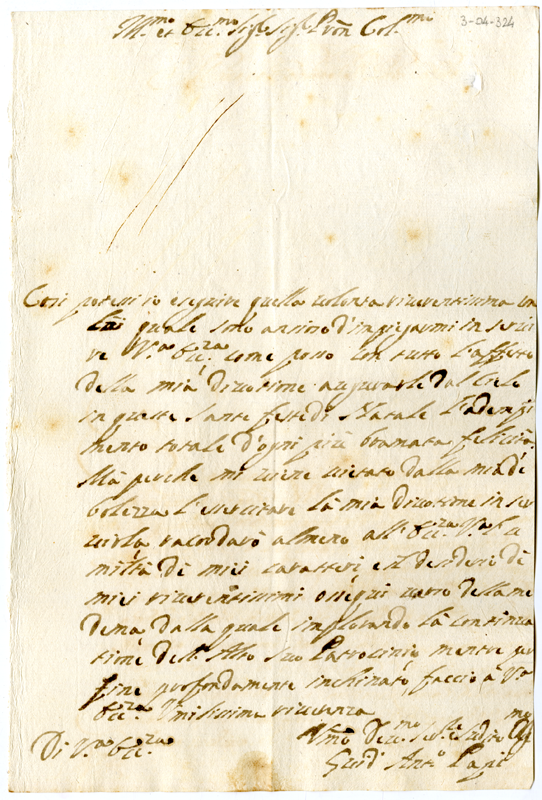 Ill.mo et Ecc.mo Sig.r Sig.r Pron Col.mo
3-04-324
Così potessi io eseguire quella volontà riverentissima con
la quale sono ansioso d'impiegarmi in servi
re V.ra Ecc.za come posso con tutto l'affetto
della mia divotione augurarle dal Cielo
in queste Sante feste di Natale l'adempi
mento totale d'ogni più bramata felicità.
Mà perche mi viene vietato dalla mia de
bolezza l'essercitare la mia divotione in ser
virla racordarò almeno all' Ecc.za V.ra l'u
miltà di miei caratteri e il desiderio di
miei riverentissimi ossequi verso della me
dema dalla quale implorando la continua
tione dell' Alto suo Patrocinio mentre per
fine profondamente inchinato, faccio a V.ra
Ecc.za Umilissima riverenza
Di V.ra Ecc.za
Umo Dev.mo
Guid' Ant.o